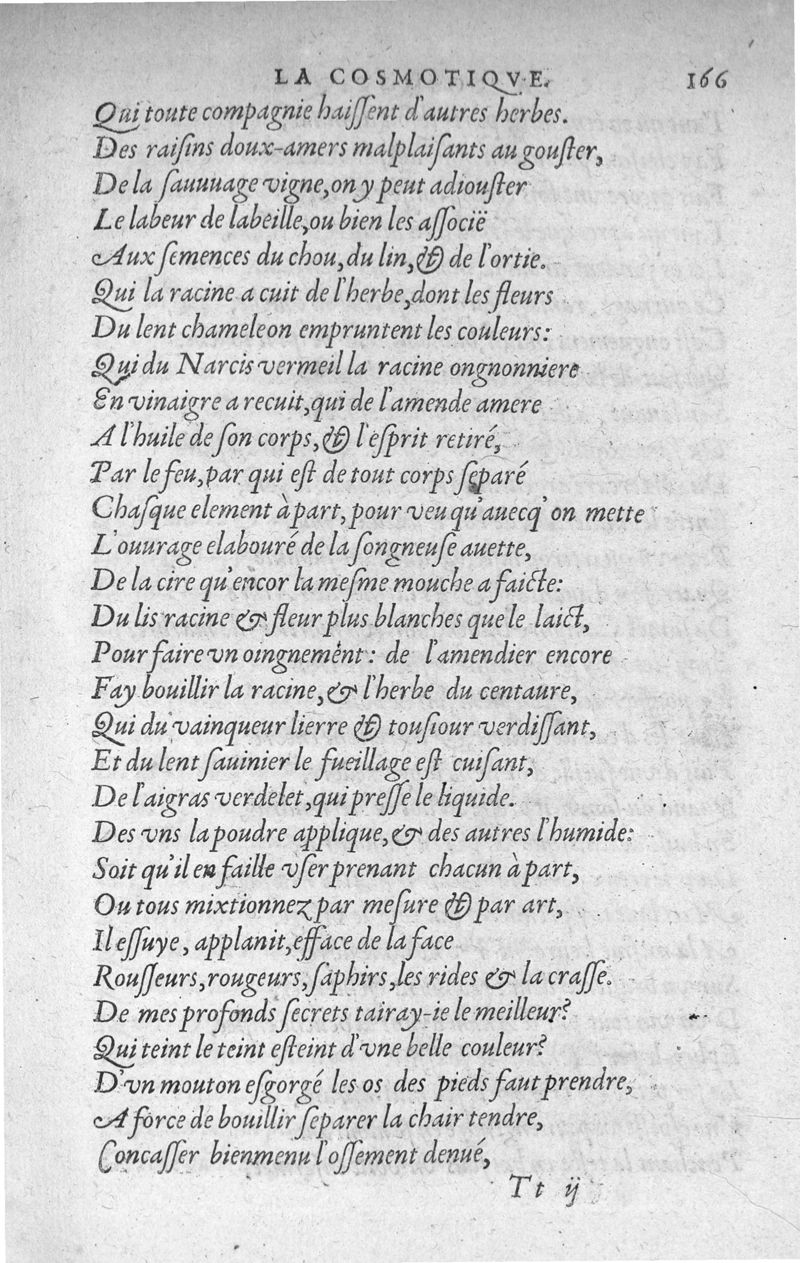 LA COSMOTIQVE. 166
Qui toute compagnie haissent d'autres herbes.
Des raisins doux-amers malplaisants au gouster,
De la sauuuage vigne, on y peut adiouster
Le labeur de labeille, ou bien les associë
Aux semences du chou, du lin, & de l'ortie.
Qui la racine a cuit de l'herbe, dont les fleurs
Du lent chameleon empruntent les couleurs:
Qui du Narcis vermeil la racine ongnonniere
En vinaigre a recuit, qui de l'amende amere
A l'huile de son corps, & l'esprit retiré,
Par le feu, par qui est de tout corps separé
Chasque element à part, pour veu qu'auecq' on mette
L'ouurage elabouré de la songneuse auette,
De la cire qu'encor la mesme mouche a faicte:
Du lis racine & fleur plus blanches que le laict,
Pour faire vn oingnement: de l'amendier encore
Fay bouillir la racine, & l'herbe du centaure,
Qui du vainqueur lierre & tousiour verdissant,
Et du lent sauinier le fueillage est cuisant,
De l'aigras verdelet, qui presse le liquide.
Des vns la poudre applique, & des autres l'humide:
Soit qu'il en faille vser prenant chacun à part,
Ou tous mixtionnez par mesure & par art,
Il essuye, applanit, efface de la face
Rousseurs, rougeurs, saphirs, les rides & la crasse.
De mes profonds secrets tairay-ie le meilleur?
Qui teint le teint esteint d'vne belle couleur?
D'vn mouton esgorgé les os des pieds faut prendre,
A force de bouillir separer la chair tendre,
Concasser bienmenu l'ossement denué,
Tt ij